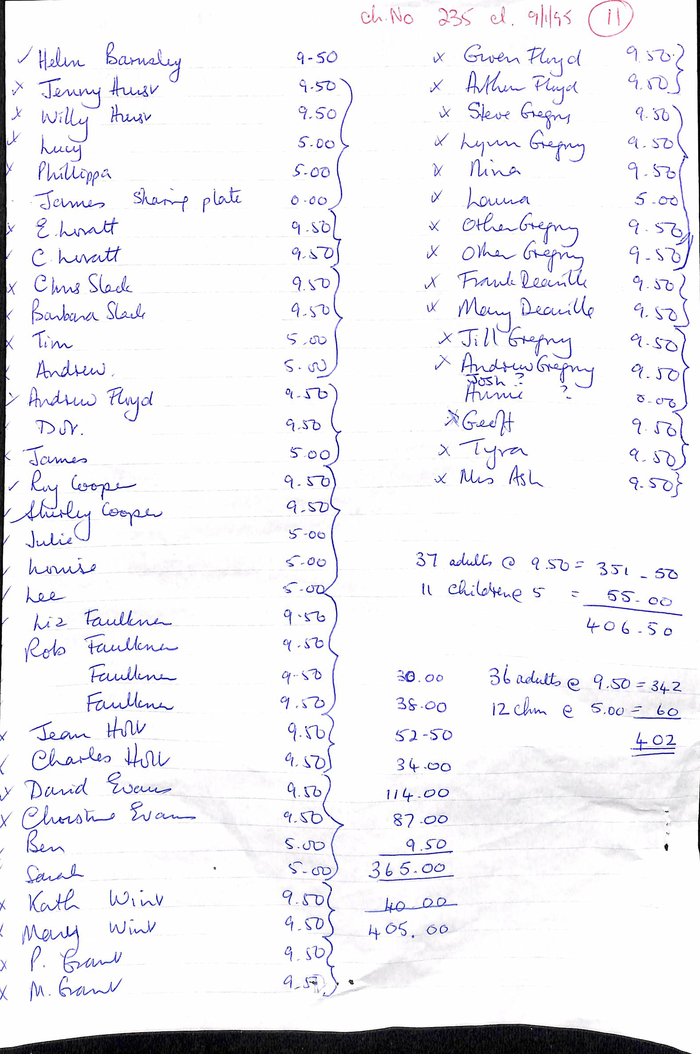 ch. No 235 cl. 9/1/95 11
✓ Helen Barnsley 9-50
x Jenny Hurst 9.50
x Willy Hurst 9.50
x Lucy 5.00
x Phillippa 5.00
James sharing plate 0.00
x E. Lovatt 9.50
✓ C. Lovatt 9.50
x Chris Slack 9.50
x Barbara Slack 9.50
x Tim 5.00
✓ Andrew. 5.00
x Andrew Floyd 9.50
Dot. 9.50
James 5.00
✓ Roy Cooper 9.50
✓ Shirley Cooper 9.50
✓ Julie 5.00
✓ Louise 5.00
✓ Lee 5.00
Liz Faulkner 9.50
Rob Faulkner 9.50
Faulkner 9.50
Faulkner 9.50
x Jean Holl 9.50
Charles Holl 9.50
x David Evans 9.50
x Christine Evans 9.50
Ben 5.00
Sarah 5.00
x Kath Wint 9.50
x Mary Wint 9.50
x P. Grant 9.50
x M. Grant 9.50
x Gwen Floyd 9.50
x Arthur Floyd 9.50
x Steve Gregory 9.50
x Lynn Gregory 9.50
x Nina 9.50
x Launa 5.00
x Other Gregory 9.50
x Other Gregory 9.50
x Frank Deaville 9.50
x Mary Deaville 9.50
x Jill Gregory 9.50
✓ Andrew Gregory 9.50
Josh ?
Annie ? 0.00
x Geoff 9.50
x Tyra 9.50
x Mrs Ash 9.50
37 adults @ 9.50 = 351 - 50
11 children @ 5 = 55.00
406.50
30.00
38.00
52-50
34.00
114.00
87.00
9.50
365.00
40 00
405.00
36 adults @ 9.50 = 342
12 chn @ 5.00 = 60
402